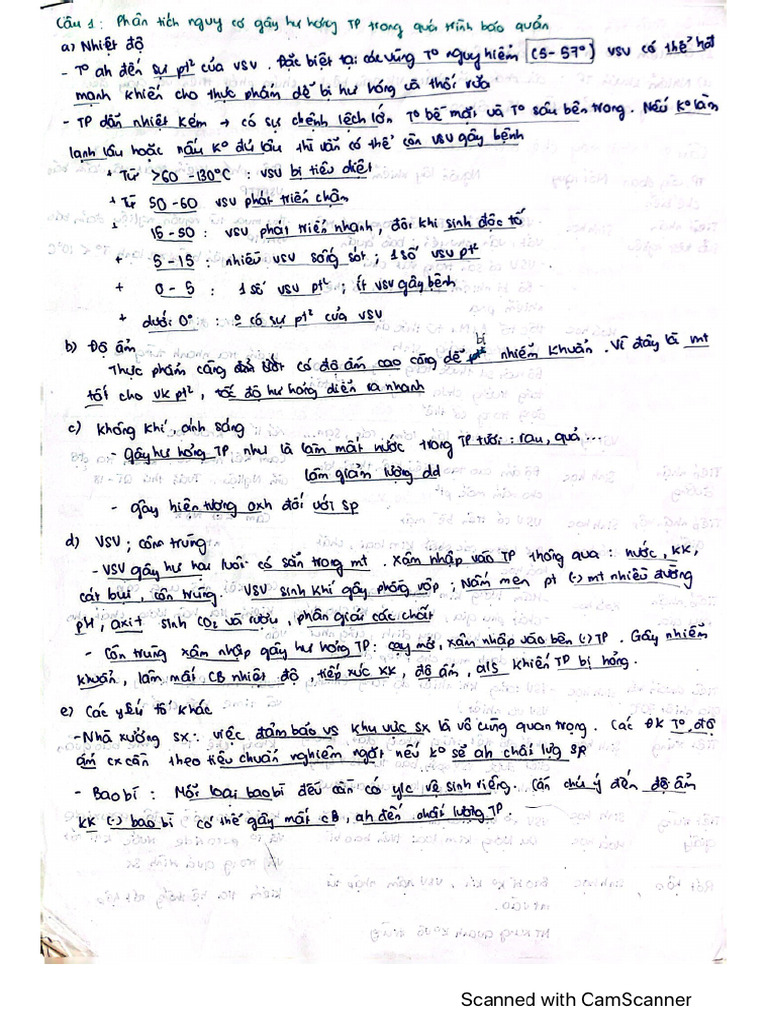 Câu 1: Phân tích nguy cơ gây hư hỏng TP trong quá trình bảo quản
a) Nhiệt độ
- T° ah đến sự pt² của VSV. Đặc biệt tại các vùng T° nguy hiểm (5-57°) VSV có thể hđ
mạnh khiến cho thực phẩm dễ bị hư hỏng và thối rữa
- TP dẫn nhiệt kém → có sự chênh lệch lớn T° bề mặt và T° sâu bên trong. Nếu k° làm
lạnh lâu hoặc nấu k° đủ lâu thì vẫn có thể còn VSV gây bệnh
+ Từ >60 - 130°C : VSV bị tiêu diệt
+ Từ 50-60 VSV phát triển chậm
+ 15-50 : VSV phát triển nhanh, đôi khi sinh độc tố
+ 5-15 : nhiều VSV sống sót ; 1 số VSV pt²
+ 0-5 : 1 số VSV pt² ; ít VSV gây bệnh
+ dưới 0° : 0 có sự pt² của VSV
b) Độ ẩm
Thực phẩm càng ướt có độ ẩm cao càng dễ bị nhiễm khuẩn. Vì đây là mt
tốt cho VK pt², tốc độ hư hỏng diễn ra nhanh
c) Không khí, ánh sáng
- Gây hư hỏng TP như là làm mất nước trong TP tươi : rau, quả ...
làm giảm lượng dd
- gây hiện tượng oxh đối với sp
d) VSV ; côn trùng
- VSV gây hư hại luôn có sẵn trong mt. Xâm nhập vào TP thông qua : nước, KK,
cát bụi, côn trùng. VSV sinh khí gây phồng vộp ; Nấm men pt (-) mt nhiều đường
pH, axit sinh CO₂ và rượu, phân giải các chất
- Côn trùng xâm nhập gây hư hỏng TP : cạy mở, xâm nhập vào bên (-) TP. Gây nhiễm
khuẩn, làm mất CB nhiệt độ, tiếp xúc KK, độ ẩm, a/s khiến TP bị hỏng.
e) Các yếu tố khác
- Nhà xưởng SX : việc đảm bảo VS khu vực SX là vô cùng quan trọng. Các ĐK T°, độ
ẩm cx cần theo tiêu chuẩn nghiêm ngặt nếu k° sẽ ah chất lựg SP
- Bao bì : Mỗi loại bao bì đều cần có y/c vệ sinh riêng. Cần chú ý đến độ ẩm
KK (-) bao bì có thể gây mất CB, ah đến chất lượng TP
Scanned with CamScanner